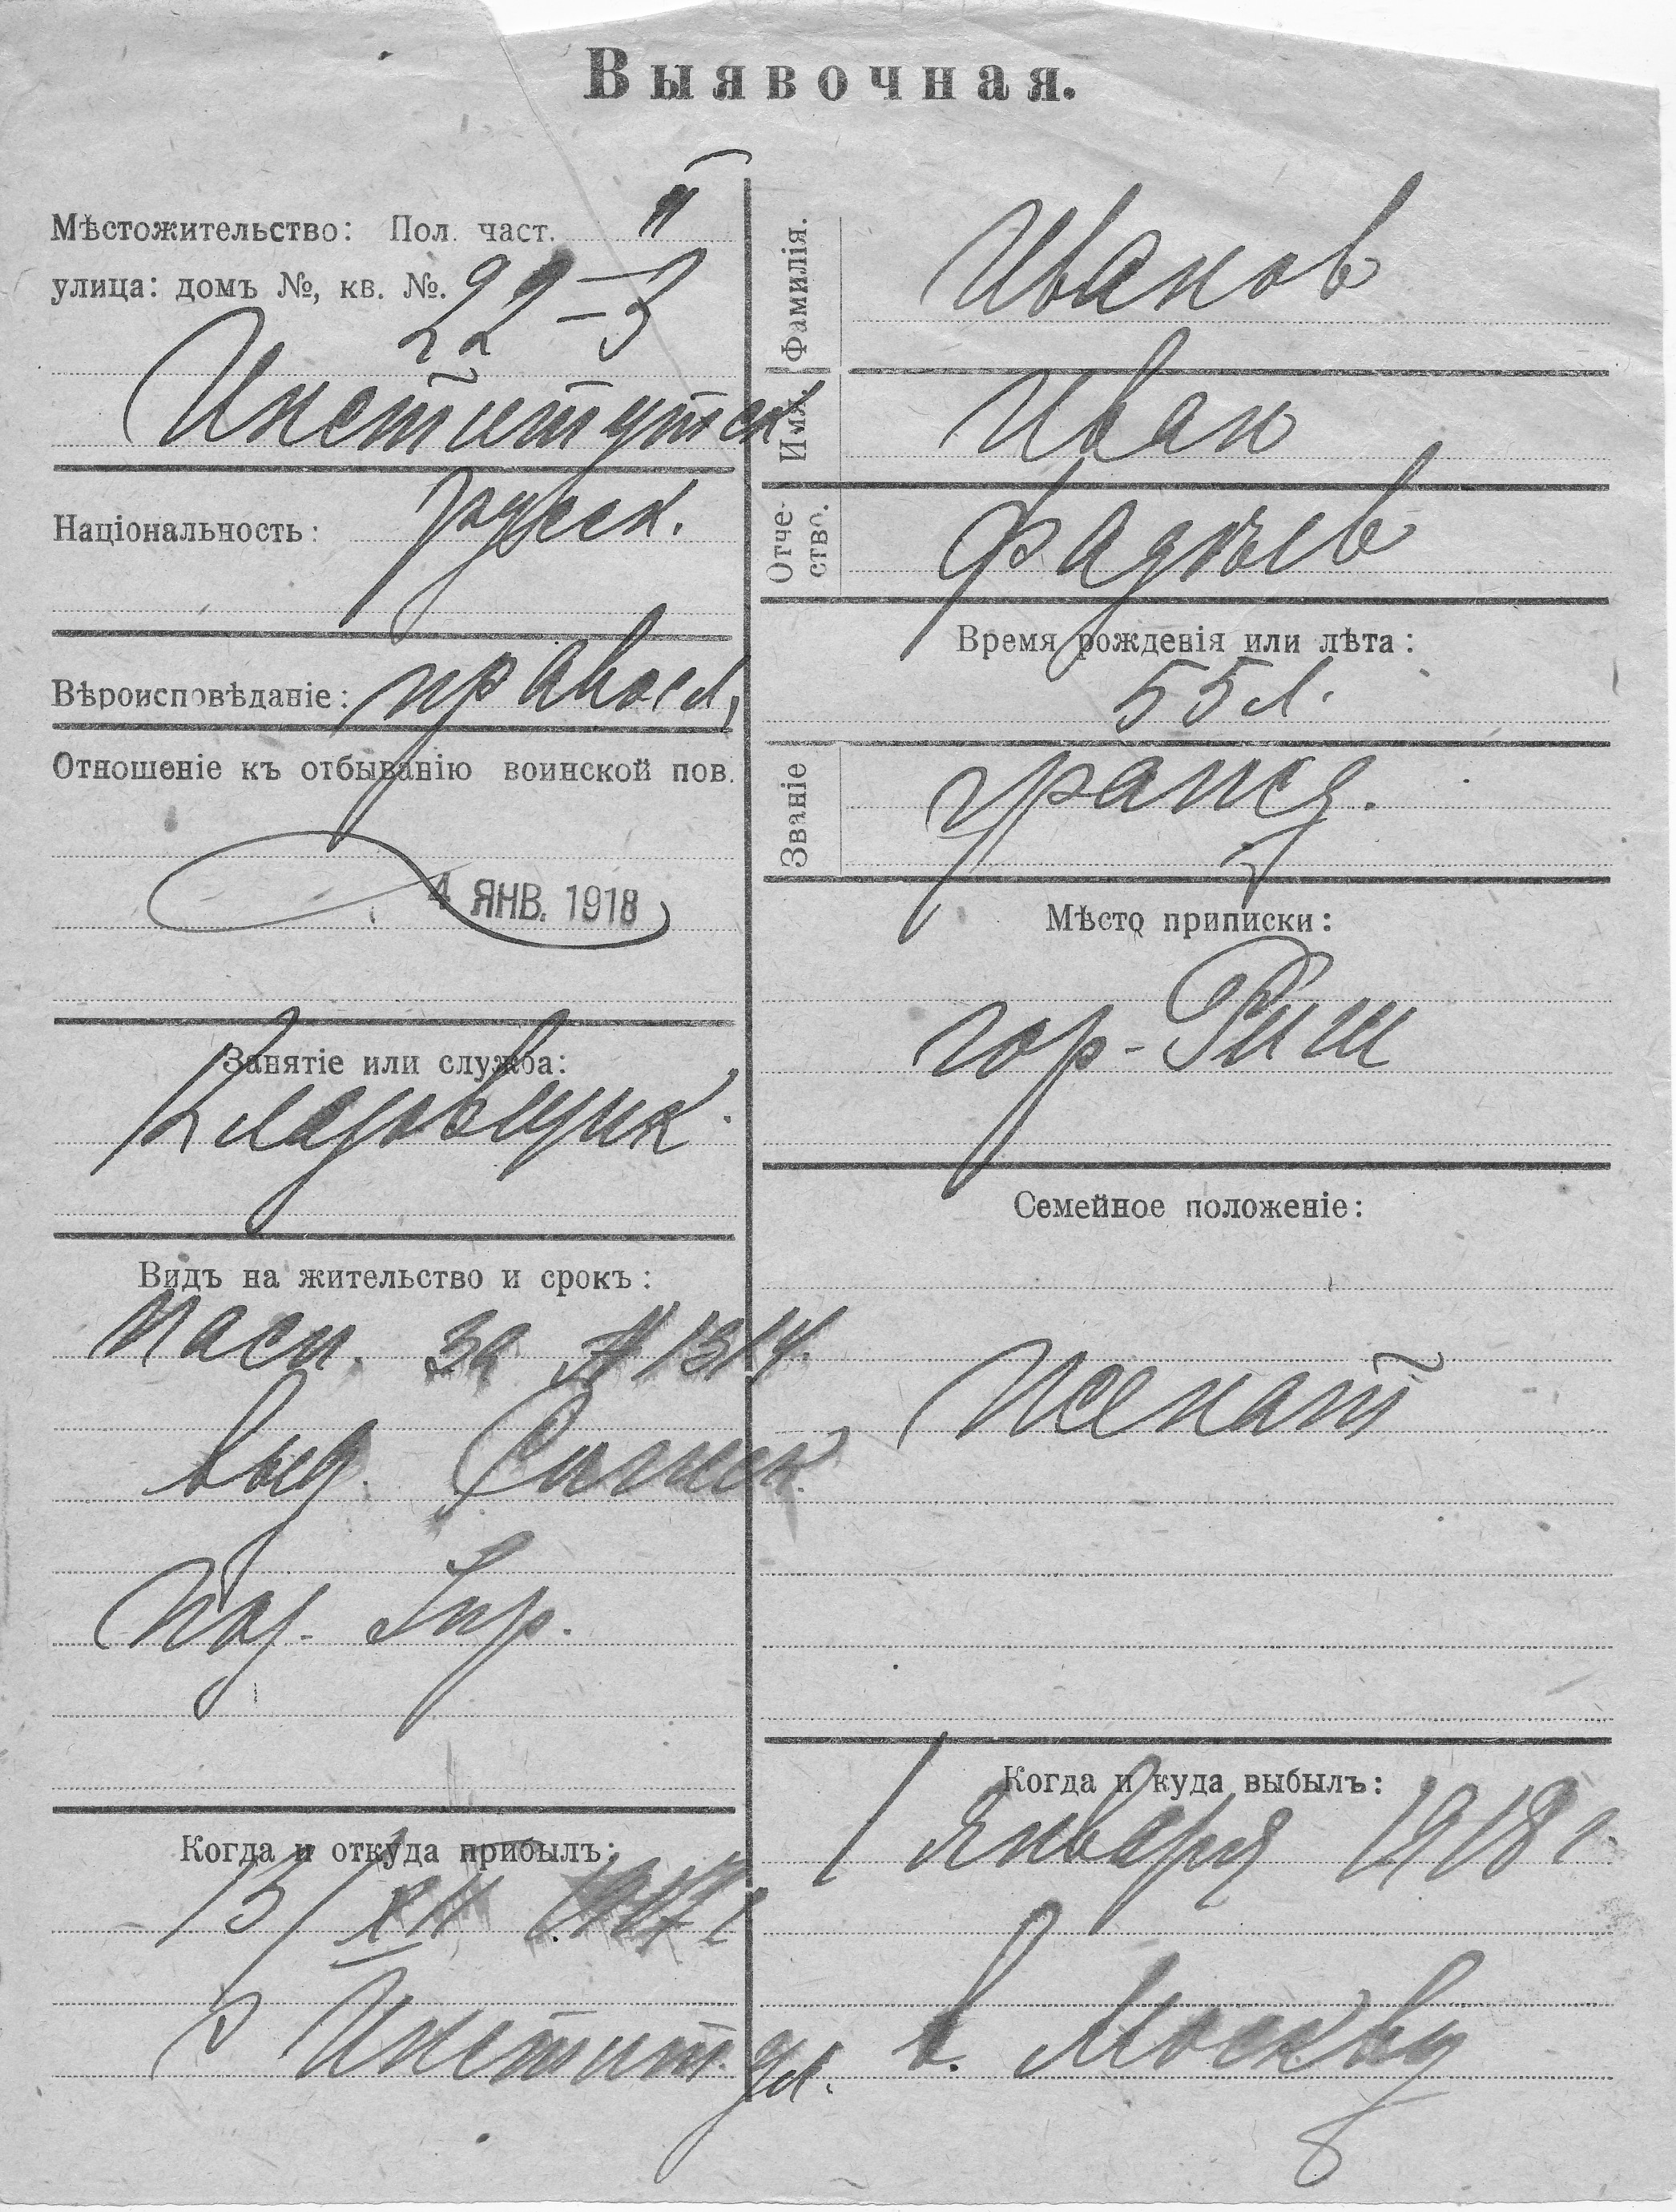 Выявочная.
Мѣстожительство: Пол. част. II
улица: домъ №, кв. №. 22-3
Институтск
Національность: русск.
Вѣроисповѣданіе: правосл,
Отношеніе къ отбыванію воинской пов.
4 ЯНВ. 1918
Занятіе или служба:
Кладовщик
Видъ на жительство и срокъ:
Пасп. за № 1314.
выд.
Пол. Упр.
Когда и откуда прибылъ:
15/XII 1917 г
с Институт. ул.
Фамилія. Иванов
Имя. Иван
Отчество. Фадѣев
Время рожденія или лѣта:
55 л.
Званіе гражд.
Мѣсто приписки:
гор-
Семейное положеніе:
Женат
Когда и куда выбылъ:
1 Января 1918 г.
в. Москву